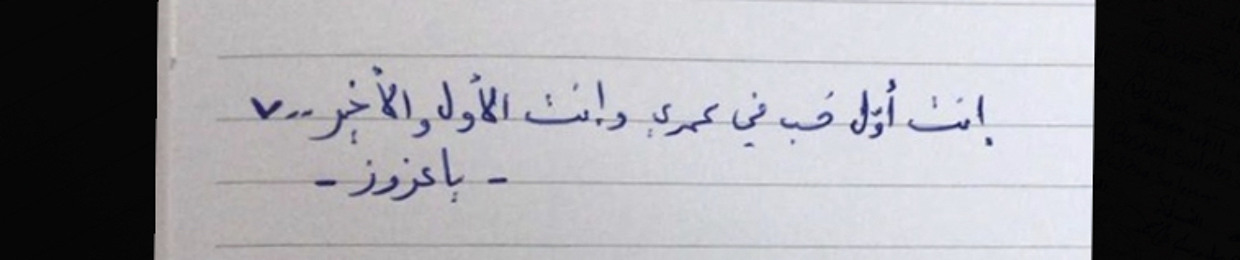 إنت أوّل حُب في عمري وإنت الأول والأخير..♥
- باعزوز -